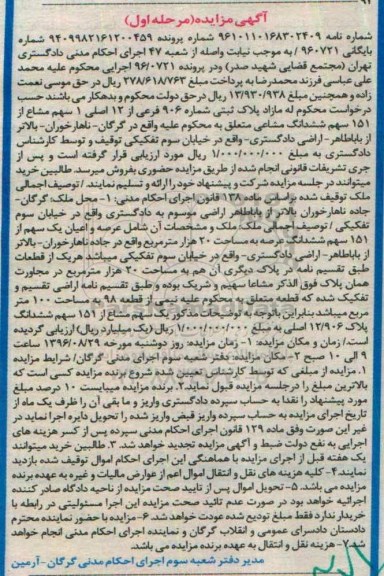 آگهی مزایده(مرحله اول)
شماره نامه ۹۶۱۰۱۱۰۱۶۸۳۰۲۴۰۹ شماره پرونده ۹۴۰۹۹۸۲۱۶۱۲۰۰۴۵۹ شماره
بایگانی ۹۶۰۷۲۱ / به موجب نیابت واصله از شعبه ۴۷ اجرای احکام مدنی دادگستری
تهران (مجتمع قضایی شهید صدر) ودر پرونده ۹۶/۰۷۲۱ اجرایی محکوم علیه محمد
علی عباسی فرزند محمدرضا به پرداخت مبلغ ۲۷۸/۶۱۸/۷۶۳ ریال در حق موسی نعمت
زاده و همچنین مبلغ ۱۳/۹۳۰/۹۳۸ ریال در حق دولت محکوم و بدهکار می باشند حسب
درخواست محکوم له مازاد پلاک ثبتی شماره ۹۰۶ فرعی از ۱۲ اصلی ۱ سهم مشاع از
۱۵۱ سهم ششدانگ مشاعی متعلق به محکوم علیه واقع در گرگان- ناهارخوران- بالاتر
از باباطاهر- اراضی دادگستری- واقع در خیابان سوم تفکیکی توقیف و توسط کارشناس
دادگستری به مبلغ ۱/۰۰۰/۰۰۰/۰۰۰ ریال مورد ارزیابی قرار گرفته است و پس از
جری تشریفات قانونی انجام شده از طریق مزایده حضوری بفروش میرسد. طالبین خرید
میتوانند در جلسه مزایده شرکت و پیشنهاد خود را ارائه و تسلیم نمایند. / توصیف اجمالی
ملک توقیف شده براساس ماده ۱۳۸ قانون اجرای احکام مدنی: ۱- محل ملک: گرگان-
جاده ناهارخوران بالاتر از باباطاهر اراضی موسوم به دادگستری واقع در خیابان سوم
تفکیکی / توصیف اجمالی ملک: ملک و مشخصات آن شامل عرصه و اعیان یک سهم از
۱۵۱ سهم ششدانگ عرصه به مساحت ۲۰ هزار مترمربع واقع در جاده ناهارخوران- بالاتر
از باباطاهر- اراضی دادگستری- واقع در خیابان سوم تفکیکی میباشد هریک از قطعات
طبق تقسیم نامه در پلاک دیگری آن هم به مساحت ۲۰ هزار مترمربع در مجاورت
همان پلاک فوق الذکر مشاعا سهیم و شریک بوده و طبق تقسیم نامه اراضی تقسیم و
تفکیک شده که قطعه متعلق به محکوم علیه نیمی از قطعه ۹۸ به مساحت ۱۰۰ متر
مربع میباشد بنابراین باتوجه به توضیحات مذکور یک سهم مشاع از ۱۵۱ سهم ششدانگ
پلاک ۱۲/۹۰۶ اصلی به مبلغ ۱/۰۰۰/۰۰۰/۰۰۰ ریال (یک میلیارد ریال) ارزیابی گردیده
است./ زمان و مکان مزایده: ۱- زمان مزایده: روز دوشنبه مورخه ۱۳۹۶/۰۸/۲۹ ساعت
۹ الی ۱۰ صبح ۲- مکان مزایده: دفتر شعبه سوم اجرای مدنی گرگان/ شرایط مزایده
۱. مزایده از مبلغی که توسط کارشناس تعیین شده شروع برنده مزایده کسی است که
بالاترین مبلغ را درجلسه مزایده قبول نماید.۲. برنده مزایده میبایست ۱۰ درصد مبلغ
مورد پیشنهاد را نقدا به حساب سپرده دادگستری واریز و ما بقی آن را ظرف یک ماه از
تاریخ اجرای مزایده به حساب سپرده واریز قبض واریز شده را تحویل دایره اجرا نماید در
غیر این صورت وفق ماده ۱۲۹ قانون اجرای احکام مدنی سپرده پس از کسر هزینه های
اجرایی به نفع دولت ضبط و آگهی مزایده تجدید خواهد شد. ۳. طالبین خرید میتوانند
یک هفته قبل از اجرای مزایده با هماهنگی این اجرای احکام اموال توقیف شده بازدید
نمایند.۴- کلیه هزینه های نقل و انتقال اموال اعم از عوارض مالیات و غیره به عهده برنده
مزایده می باشد. ۵- تحویل اموال پس از تایید صحت مزایده از ناحیه دادگاه صادر کننده
اجرائیه خواهد بود در صورت عدم تائید صحت مزایده این اجرا مسئولیتی در رابطه با
خریدار ندارد فقط مبلغ تودیع شده عودت خواهد شد. ۶- مزایده با حضور نماینده محترم
دادستان دادسرای عمومی و انقلاب گرگان و نماینده اجرای احکام مدنی انجام خواهد
شد ۷- هزینه نقل و انتقال به عهده برنده مزایده می باشد.
مدیر دفتر شعبه سوم اجرای احکام مدنی گرگان- آرمین